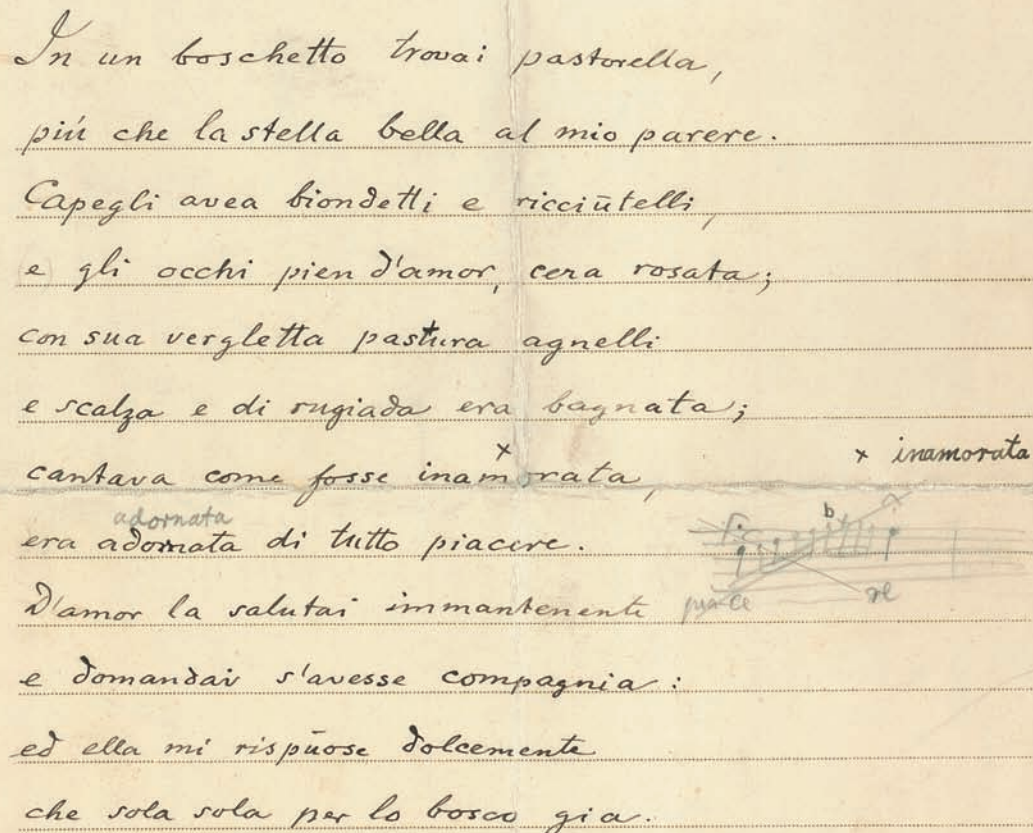 In un boschetto trovai pastorella,
piú che la stella bella al mio parere.
Capegli avea biondetti e ricciūtelli,
e gli occhi pien d'amor, cera rosata;
con sua vergletta pastura agnelli
e scalza e di rugiada era bagnata;
cantava come fosse inamorata,
x
x inamorata
adornata
era adornata di tutto piacere.
b
piace
re
D'amor la salutai immantenente
e domandai s'avesse compagnia:
ed ella mi rispūose dolcemente
che sola sola per lo bosco gia.